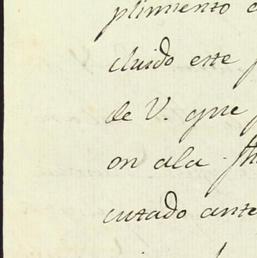 plimiento
cluido este
de V. que
on ala
cutado ante